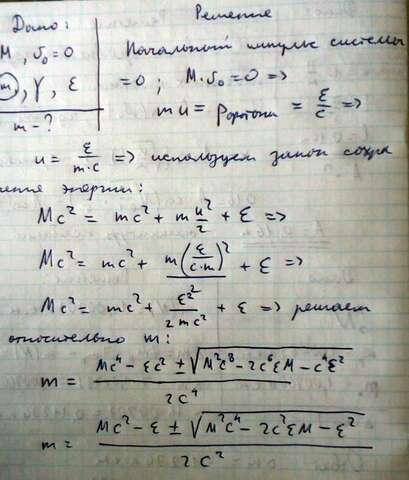 Дано:
M, υ₀=0
m, γ, ε
m-?
Решение
Начальный импульс системы
=0 ; M·υ₀=0 =>
m u = Pфотона = ε/c =>
u = ε/(m·c) => используем закон сохра
нение энергии:
Mc² = mc² + m u²/2 + ε =>
Mc² = mc² + m(ε/(c·m))² + ε =>
Mc² = mc² + ε²/(2mc²) + ε => решаем
относительно m:
m = (Mc⁴ - εc² ± √(M²c⁸ - 2c⁶εM - c⁴ε²))/(2c⁴)
m = (Mc² - ε ± √(M²c⁴ - 2c²εM - ε²))/(2c²)